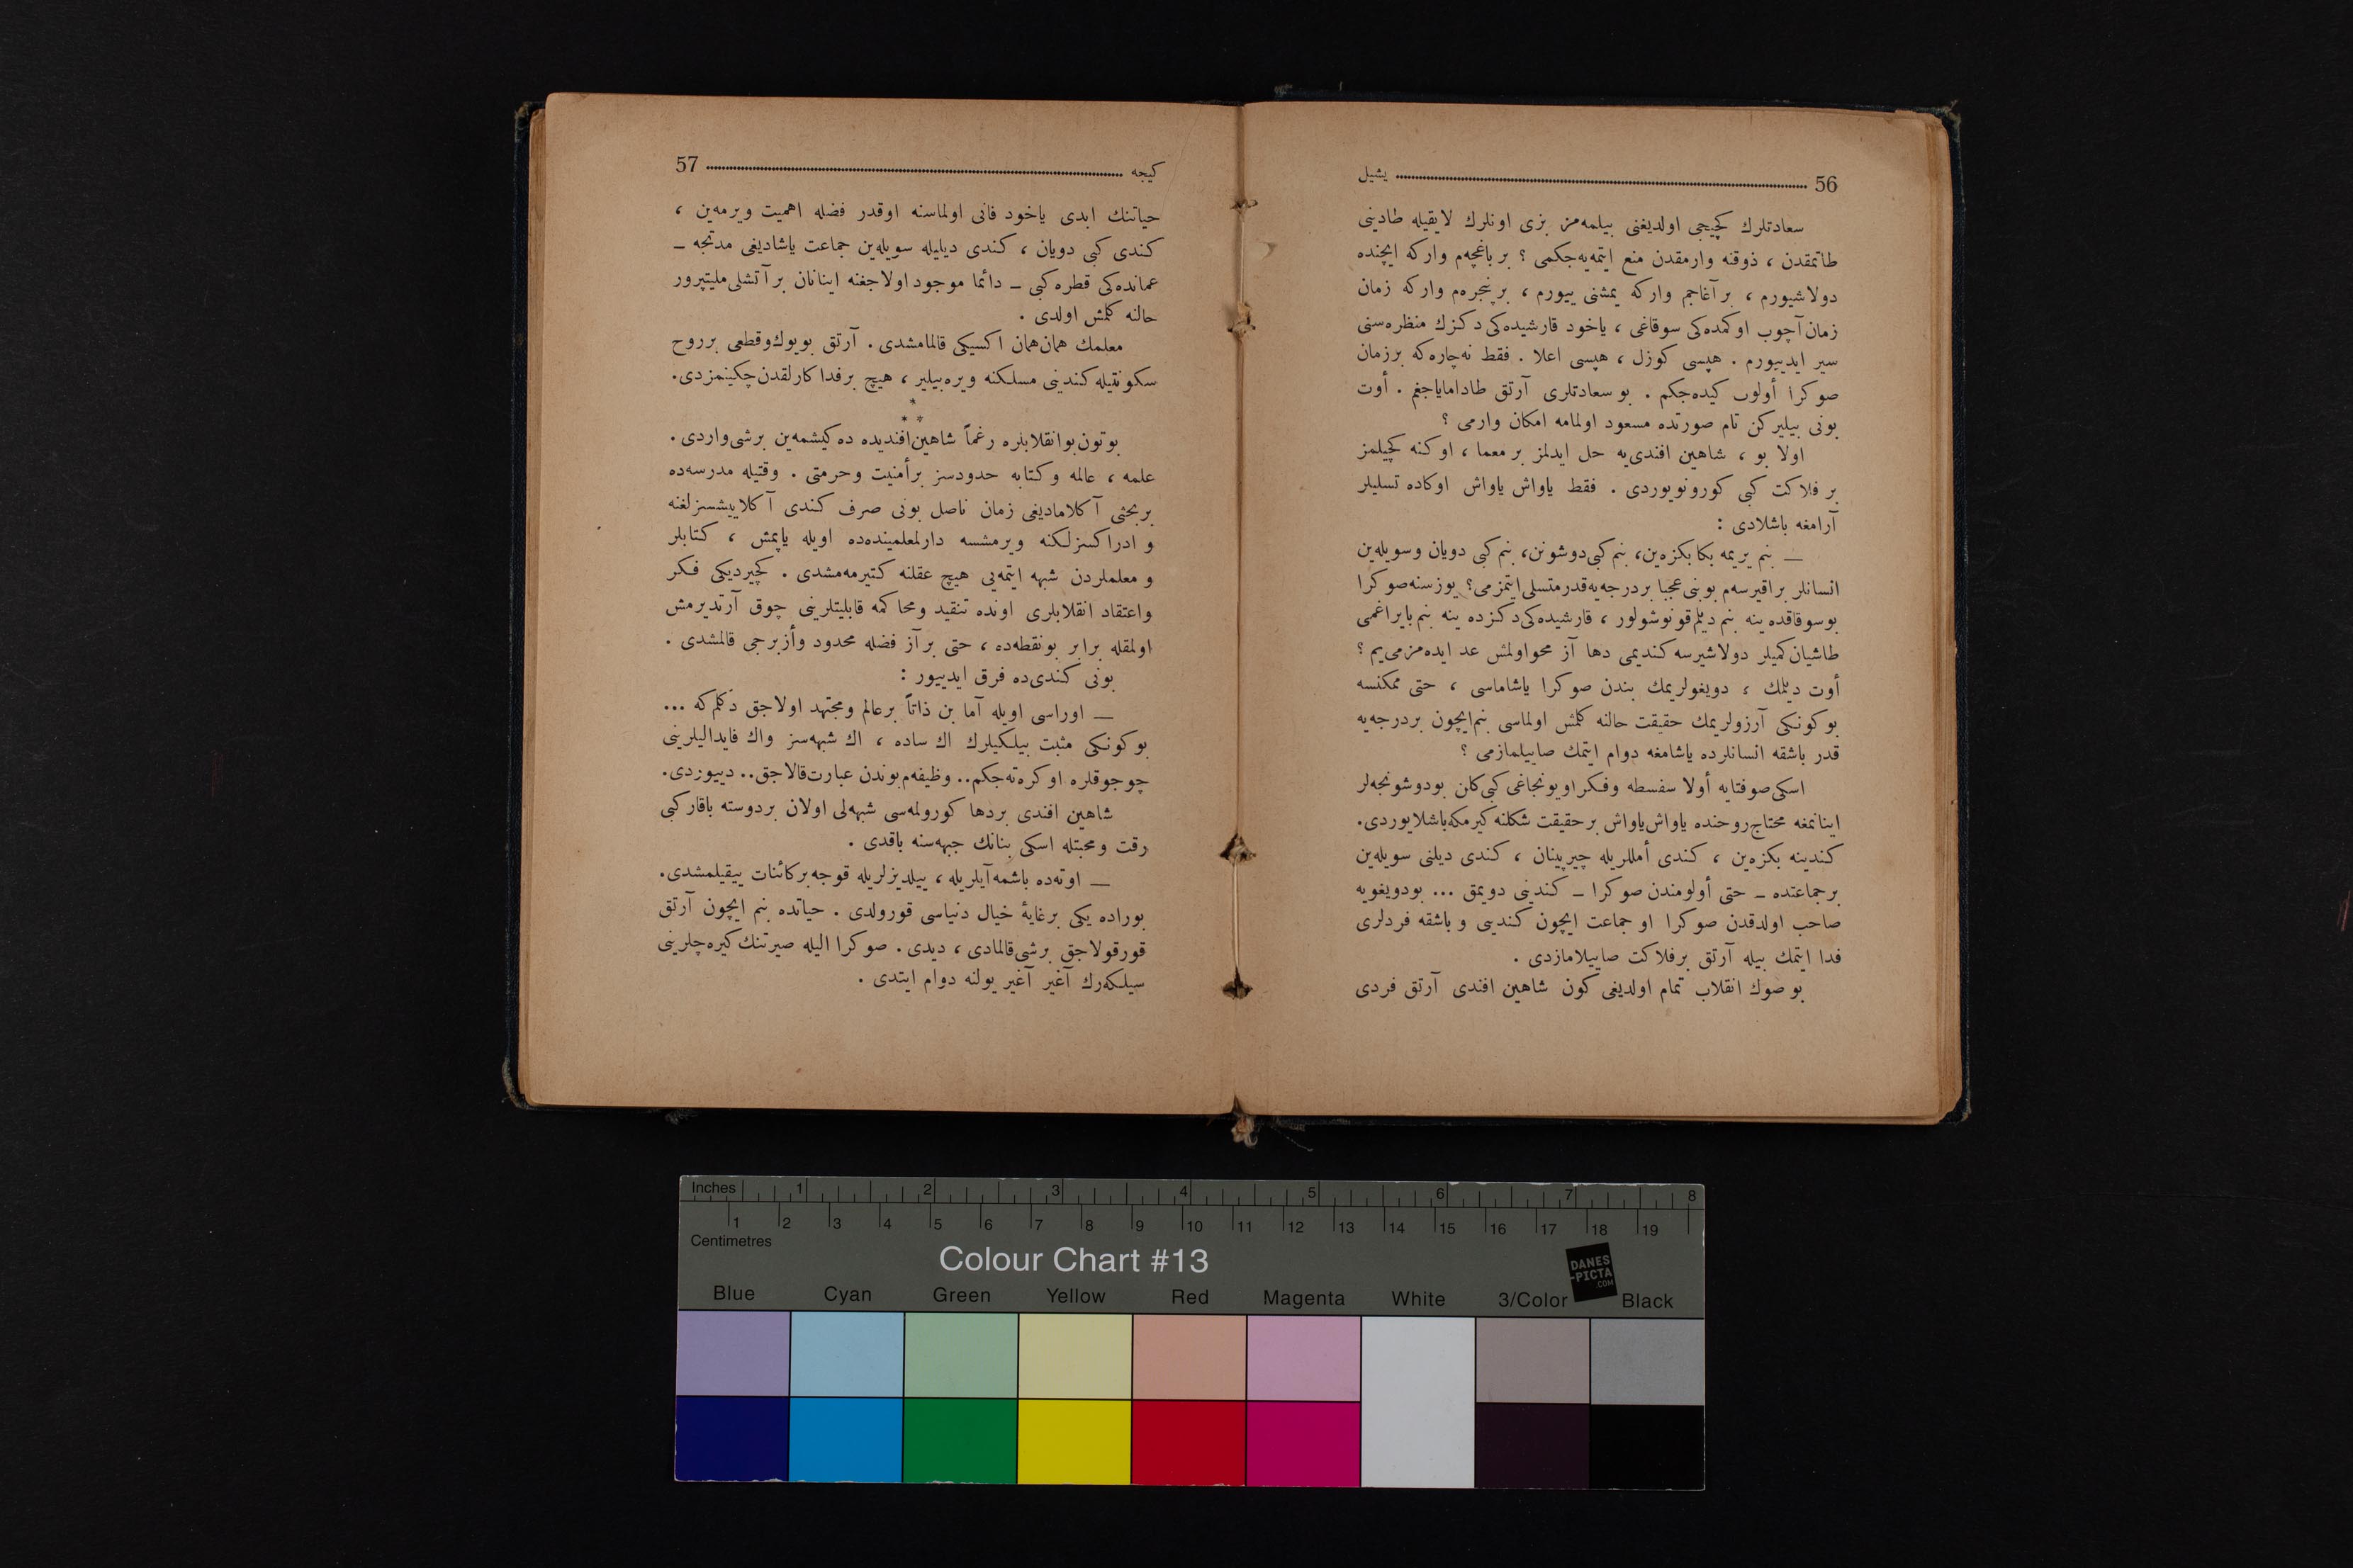 56 يشيل
سعادتلرك كچيجی اولديغنی بيلمه‌مز بزی اونلرك لايقيله طادينی
طاتمقدن ، ذوقنه وارمقدن منع ايتمه‌يه‌جكمی ؟ بر باغچه‌م واركه ايچنده
دولاشيورم ، بر آغاجم واركه يمشنی ييورم ، بر پنجره‌م واركه زمان
زمان آچوب اوكمده‌كی سوقاغی ، ياخود قارشيده‌كی دكزك منظره‌سنی
سير ايدييورم . هپسی كوزل ، هپسی اعلا . فقط نه‌چاره‌كه برزمان
صوكرا أولوب كيده‌جكم . بو سعادتلری آرتق طاداماياجغم . أوت
بونی بيليركن تام صورتده مسعود اولمامه امكان وارمی ؟
اولا بو ، شاهين افندی‌يه حل ايدلمز بر معما ، اوكنه كچيلمز
بر فلاكت كبی كورونويوردی . فقط ياواش ياواش اوكاده تسليلر
آرامغه باشلادی :
— بنم يريمه بكا بكزه‌ين، بنم كبی دوشونن، بنم كبی دويان وسويله‌ين
انسانلر براقيرسه‌م بو بنی عجبا بر درجه‌يه قدر متسلی ايتمزمی؟ يوز سنه صوكرا
بوسوقاقده ينه بنم ديلم قونوشولور ، قارشيده‌كی دكزده ينه بنم بايراغمی
طاشيان كميلر دولاشيرسه كنديمی دها آز محو اولمش عد ايده‌مزمی‌يم ؟
أوت ديلمك ، دويغولريمك بندن صوكرا ياشاماسی ، حتی ممكنسه
بوكونكی آرزولريمك حقيقت حالنه كلمش اولماسی بنم ايچون بر درجه‌يه
قدر باشقه انسانلرده ياشامغه دوام ايتمك صاييلمازمی ؟
اسكی صوفتايه أولا سفسطه وفكر اويونجاغی كبی كلن بو دوشونجه‌لر
اينانمغه محتاج روحنده ياواش ياواش بر حقيقت شكلنه كيرمكه باشلايوردی.
كندينه بكزه‌ين ، كندی أمللريله چيرپينان ، كندی ديلنی سويله‌ين
بر جماعتده – حتی أولومندن صوكرا – كندينی دويمق ... بودويغويه
صاحب اولدقدن صوكرا او جماعت ايچون كندينی وباشقه فردلری
فدا ايتمك بيله آرتق بر فلاكت صاييلامازدی .
بو صوك انقلاب تمام اولديغی كون شاهين افندی آرتق فردی
كيجه 57
حياتنك ابدی ياخود فانی اولماسنه اوقدر فضله اهميت ويرمه‌ين ،
كندی كبی دويان ، كندی ديليله سويله‌ين جماعت ياشاديغی مدتجه –
عمانده‌كی قطره كبی – دائما موجود اولاجغنه اينانان بر آتشلی مليتپرور
حالنه كلمش اولدی .
معلمك همان همان اكسيكی قالمامشدی . آرتق بويوك وقطعی بر روح
سكونتيله كندينی مسلكنه ويره‌بيلير ، هيچ بر فداكارلقدن چكينمزدی.
* * *
بوتون بو انقلابلره رغماً شاهين افنديده ده‌كيشمه‌ين بر شی واردی .
علمه ، عالمه وكتابه حدودسز بر أمنيت وحرمتی . وقتيله مدرسه‌ده
بر بحثی آكلاماديغی زمان ناصل بونی صرف كندی آكلاييشسزلغنه
و ادراكسزلكنه ويرمشسه دارلمعلمينده‌ده اويله ياپمش ، كتابلر
و معلملردن شبهه ايتمه‌يی هيچ عقلنه كتيرمه‌مشدی . كچيرديكی فكر
واعتقاد انقلابلری اونده تنقيد ومحاكمه قابليتلرينی چوق آرتديرمش
اولمقله برابر بونقطه‌ده ، حتی بر آز فضله محدود وأزبرجی قالمشدی .
بونی كندی‌ده فرق ايدييور :
— اوراسی اويله آما بن ذاتاً بر عالم ومجتهد اولاجق دكلم‌كه ...
بوكونكی مثبت بيلكيلرك اك ساده ، اك شبهه‌سز واك فايداليلرينی
چوجوقلره اوكره‌ته‌جكم.. وظيفه‌م بوندن عبارت قالاجق.. دييوردی.
شاهين افندی بر دها كورولمه‌سی شبهه‌لی اولان بر دوسته باقار كبی
رقت ومحبتله اسكی بنانك جبهه‌سنه باقدی .
— اوته‌ده باشمه آيلريله ، ييلديزلريله قوجه بر كائنات ييقيلمشدی.
بوراده يكی بر غايهٔ خيال دنياسی قورولدی . حياتده بنم ايچون آرتق
قورقولاجق بر شی قالمادی ، ديدی . صوكرا اليله صيرتنك كيره‌چلرينی
سيلكه‌رك آغير آغير يولنه دوام ايتدی .
Inches 1 2 3 4 5 6 7 8
1 2 3 4 5 6 7 8 9 10 11 12 13 14 15 16 17 18 19
Centimetres
Colour Chart #13
DANES
-PICTA
.COM
Blue Cyan Green Yellow Red Magenta White 3/Color Black